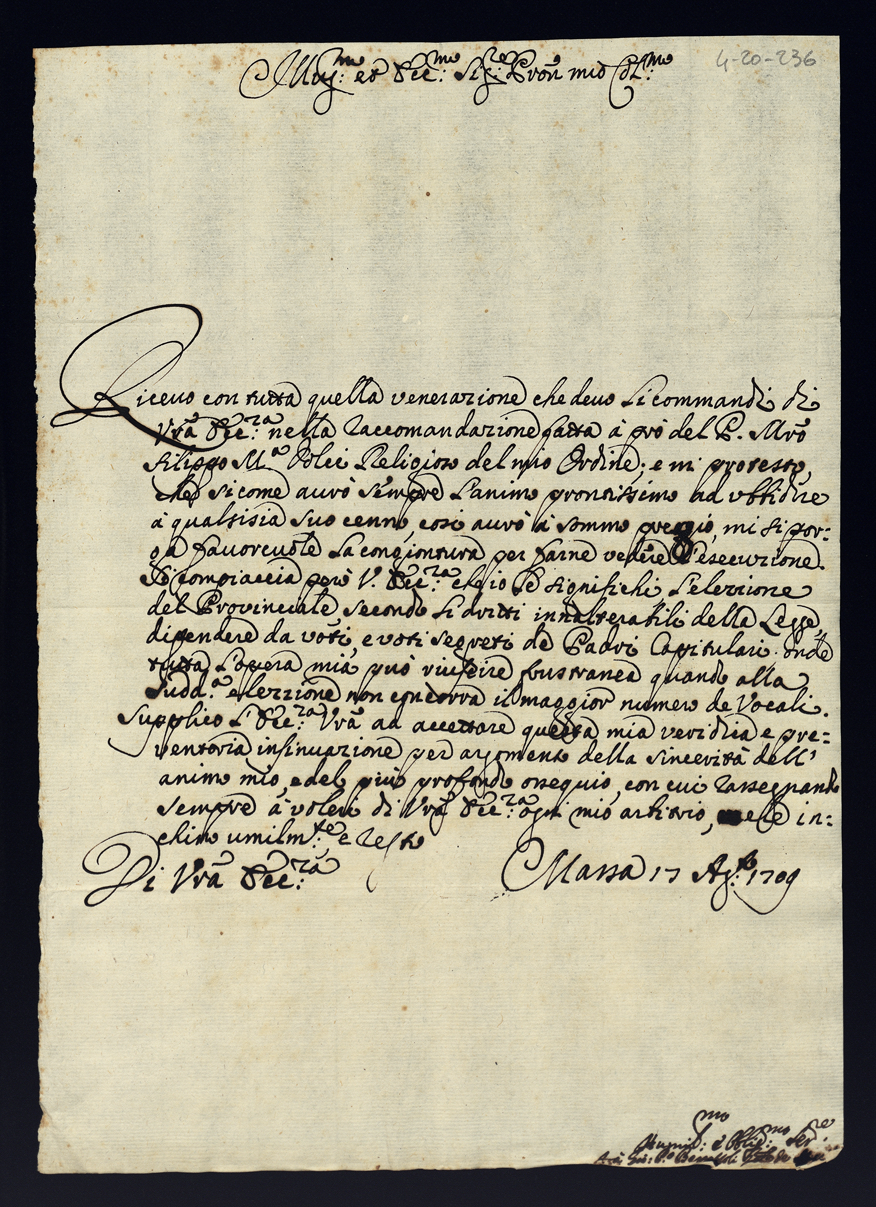 4-20-236
Ill.mo et Ecc.mo Sig.re Pron mio Col.mo
Riceuo con tutta quella venerazione che deuo li commandi di
Vrã Ecc.za nella raccomandazione fatta à prò del P. Mrõ
Filippo M.a Dolci Religioso del mio Ordine; e mi protesto,
che sicome aurò sempre l'animo prontissimo ad vbbidire
à qualsisia suo cenno, così aurò à sommo preggio, mi si por=
ga fauoreuole la congiontura per farne vedere l'esecuzione.
Si compiaccia però V. Ecc.za ch'io le significhi l'elezzione
del Prouinciale secondo li dritti innalterabili della Legge
dipendere da voti, e voti segreti de Padri Capitulari, onde
tutta l'opera mia può riuscire frustranea quando alla
sudd.a elezzione non concorra il maggior numero de Vocali.
Supplico l'Ecc.za Vrã ad accettare questa mia veridica e pre=
ventoria insinuazione per argomento della sincerità dell'
animo mio, e del più profondo ossequio, con cui rassegnando
sempre à voleri di Vrã Ecc.za ogni mio arbitrio, me le in=
chino umilm.te e resto
Di Vrã Ecc.za
Massa 17 Ag.to 1709
mo
Obblig.mo Ser.re